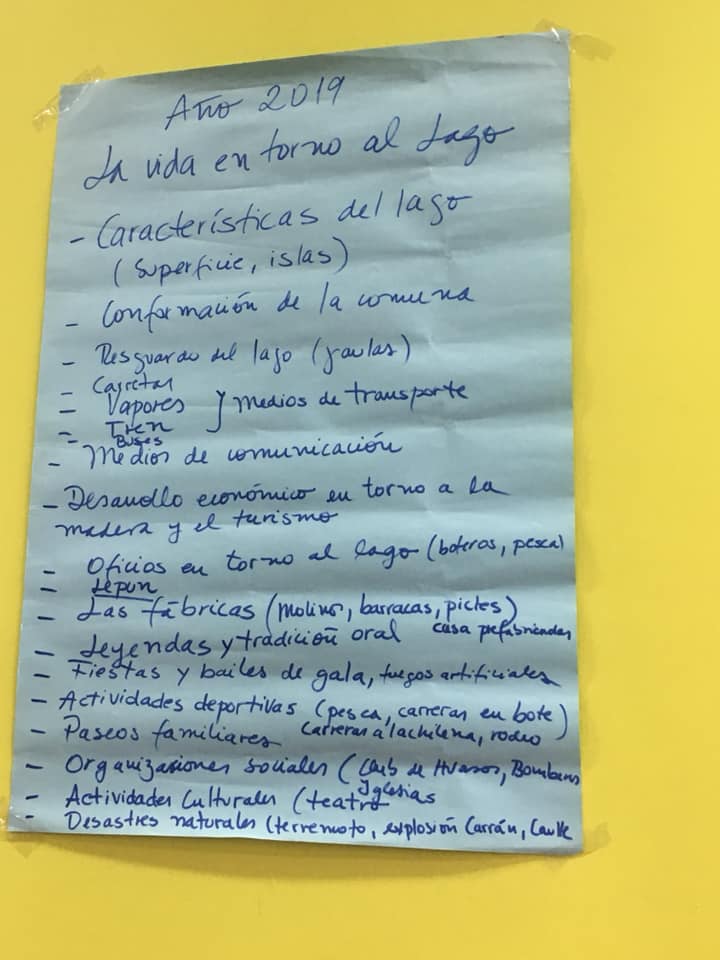 Año 2019
La vida en torno al Lago
- Características del lago
(superficie, islas)
- Conformación de la comuna
- Resguardo del lago (jaulas)
- Carretas
- Vapores } medios de transporte
- Tren
- Buses
- Medios de comunicación
- Desarrollo económico en torno a la
madera y el turismo
- Oficios en torno al lago (boteros, pesca)
- Lepun
- Las fábricas (molinos, barracas,
casa prefabricadas
- Leyendas y tradición oral
- Fiestas y bailes de gala, fuegos artificiales
- Actividades deportivas (pesca, carreras en bote)
carreras a la chilena, rodeo
- Paseos familiares
- Organizaciones sociales (Club de Huasos, Bomberos
Iglesias
- Actividades Culturales (teatro
- Desastres naturales (terremoto, explosión Carrán,